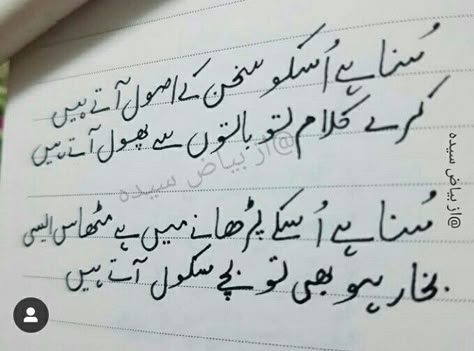 سُنا ہے اُسکو سخن کے اصول آتے ہیں
کرے کلام تو باتوں سے پھول آتے ہیں
@از بیاض سیده
سُنا ہے اُسکے پڑھانے میں ہے مٹھاس ایسی
بخار ہو بھی تو بچے سکول آتے ہیں
@از بیاض سیده